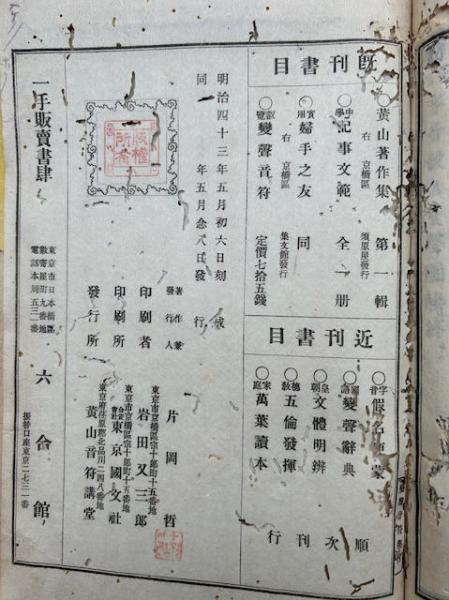 既刊書目
○黄山著作集 第一輯
右 京橋區 須原屋發行
○中學記事文範 全一册
○實用婦手之友 同
右 京橋區 集文館發行
○叡覽變聲音符 定價七十五錢
近刊書目
○字音假名 蒙 順
○國語變聲辭典
○皇朝文體明辨 次
○德教五倫發揮 刊
○家庭萬葉讀本 行
明治四十三年五月初六日刻成
同 年五月念八日發行
版權所有
著作兼發行人 片岡哲
東京市京橋區宗十郎町十五番地
印刷者 岩田又三郎
東京市京橋區宗十郎町十五番地
印刷所 合資會社東京國文社
東京府荏原郡北品川二四八番地
發行所 黄山音符講堂
一手販賣書肆
東京市日本橋區
數寄屋町九番地
電話本局五三一番
六合館
振替口座東京二七三一番